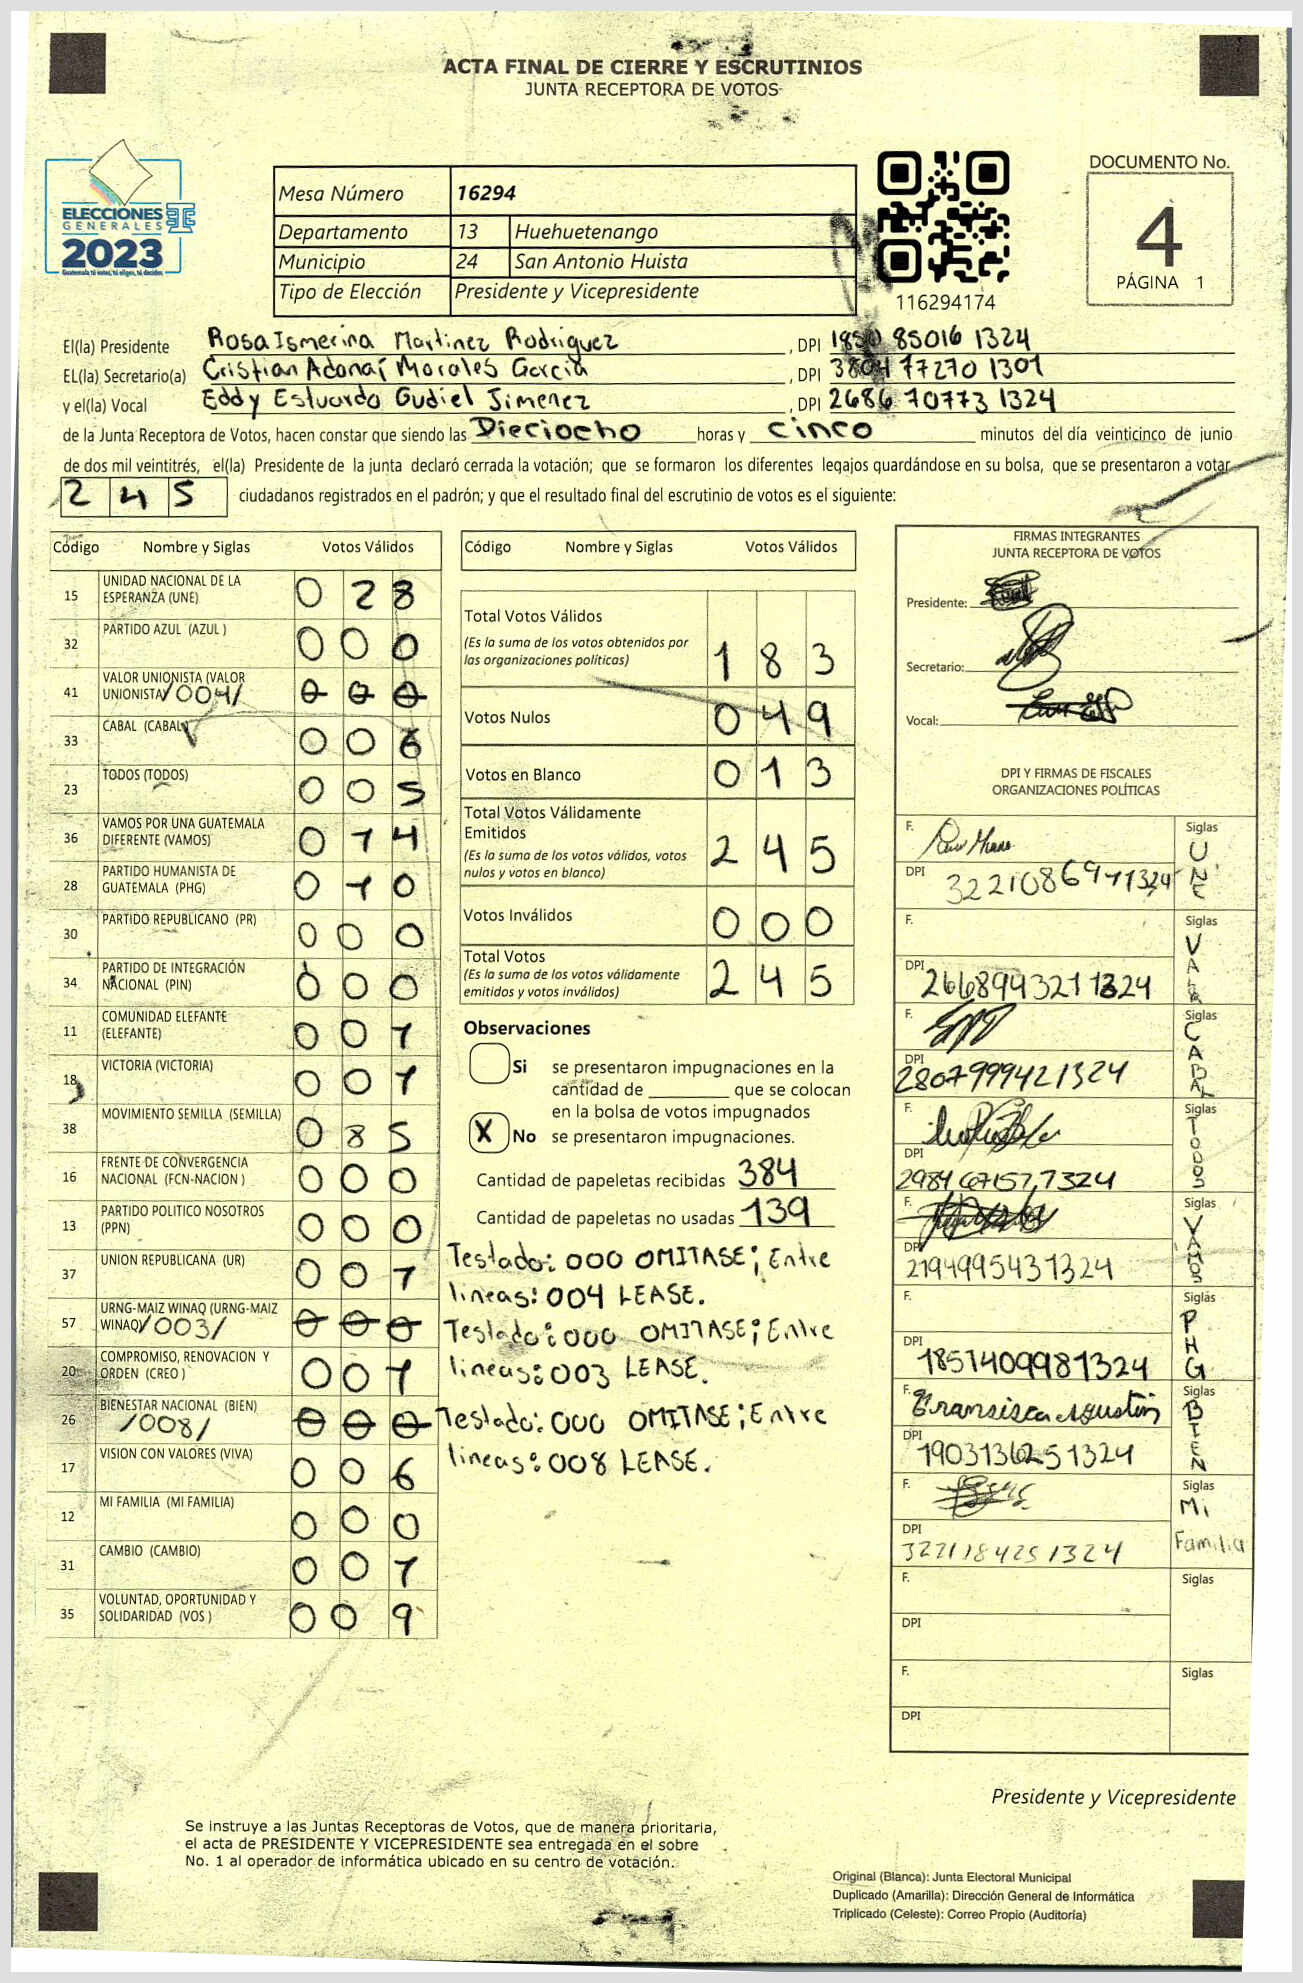 ACTA FINAL DE CIERRE Y ESCRUTINIOS
JUNTA RECEPTORA DE VOTOS
ELECCIONES
GENERALES
2023
Guatemala tú votas, tú eliges, tú decides
Mesa Número 16294
Departamento 13 Huehuetenango
Municipio 24 San Antonio Huista
Tipo de Elección Presidente y Vicepresidente
116294174
DOCUMENTO No.
4
PÁGINA 1
El(la) Presidente Rosa Ismerina Martinez Rodriguez, DPI 1850 85016 1324
EL(la) Secretario(a) Cristian Adonaí Morales García, DPI 3804 77270 1301
y el(la) Vocal Eddy Estuardo Gudiel Jimenez, DPI 2686 70773 1324
de la Junta Receptora de Votos, hacen constar que siendo las Dieciocho horas y cinco minutos del día veinticinco de junio
de dos mil veintitrés, el(la) Presidente de la junta declaró cerrada la votación; que se formaron los diferentes legajos guardándose en su bolsa, que se presentaron a votar
245 ciudadanos registrados en el padrón; y que el resultado final del escrutinio de votos es el siguiente:
Código Nombre y Siglas Votos Válidos
15 UNIDAD NACIONAL DE LA ESPERANZA (UNE) 028
32 PARTIDO AZUL (AZUL ) 000
41 VALOR UNIONISTA (VALOR UNIONISTA) /004/ 000
33 CABAL (CABAL) 006
23 TODOS (TODOS) 005
36 VAMOS POR UNA GUATEMALA DIFERENTE (VAMOS) 014
28 PARTIDO HUMANISTA DE GUATEMALA (PHG) 010
30 PARTIDO REPUBLICANO (PR) 000
34 PARTIDO DE INTEGRACIÓN NACIONAL (PIN) 000
11 COMUNIDAD ELEFANTE (ELEFANTE) 001
18 VICTORIA (VICTORIA) 001
38 MOVIMIENTO SEMILLA (SEMILLA) 085
16 FRENTE DE CONVERGENCIA NACIONAL (FCN-NACION ) 000
13 PARTIDO POLITICO NOSOTROS (PPN) 000
37 UNION REPUBLICANA (UR) 001
57 URNG-MAIZ WINAQ (URNG-MAIZ WINAQ) /003/ 000
20 COMPROMISO, RENOVACION Y ORDEN (CREO ) 001
26 BIENESTAR NACIONAL (BIEN) /008/ 000
17 VISION CON VALORES (VIVA) 006
12 MI FAMILIA (MI FAMILIA) 000
31 CAMBIO (CAMBIO) 001
35 VOLUNTAD, OPORTUNIDAD Y SOLIDARIDAD (VOS ) 009
Código Nombre y Siglas Votos Válidos
Total Votos Válidos 183
(Es la suma de los votos obtenidos por
las organizaciones políticas)
Votos Nulos 049
Votos en Blanco 013
Total Votos Válidamente
Emitidos 245
(Es la suma de los votos válidos, votos
nulos y votos en blanco)
Votos Inválidos 000
Total Votos 245
(Es la suma de los votos válidamente
emitidos y votos inválidos)
Observaciones
Si se presentaron impugnaciones en la
cantidad de ________ que se colocan
en la bolsa de votos impugnados
X No se presentaron impugnaciones.
Cantidad de papeletas recibidas 384
Cantidad de papeletas no usadas 139
Testado: 000 OMITASE; Entre
lineas: 004 LEASE.
Testado: 000 OMITASE; Entre
lineas: 003 LEASE.
Testado: 000 OMITASE; Entre
lineas: 008 LEASE.
FIRMAS INTEGRANTES
JUNTA RECEPTORA DE VOTOS
Presidente:
Secretario:
Vocal:
DPI Y FIRMAS DE FISCALES
ORGANIZACIONES POLÍTICAS
F. Siglas UNE
DPI
F. Siglas
DPI 26689943211324
F. Siglas CABAL
DPI 2807999421324
F. Siglas TODOS
DPI
F. Siglas VAMOS
DPI 2194995431324
F. Siglas PHG
DPI 1851409981324
F. Fransisca Agustín Siglas BIEN
DPI 1903136251324
F. Siglas Mi Familia
DPI 3221184251324
F. Siglas
DPI
F. Siglas
DPI
Presidente y Vicepresidente
Se instruye a las Juntas Receptoras de Votos, que de manera prioritaria,
el acta de PRESIDENTE Y VICEPRESIDENTE sea entregada en el sobre
No. 1 al operador de informática ubicado en su centro de votación.
Original (Blanca): Junta Electoral Municipal
Duplicado (Amarilla): Dirección General de Informática
Triplicado (Celeste): Correo Propio (Auditoría)